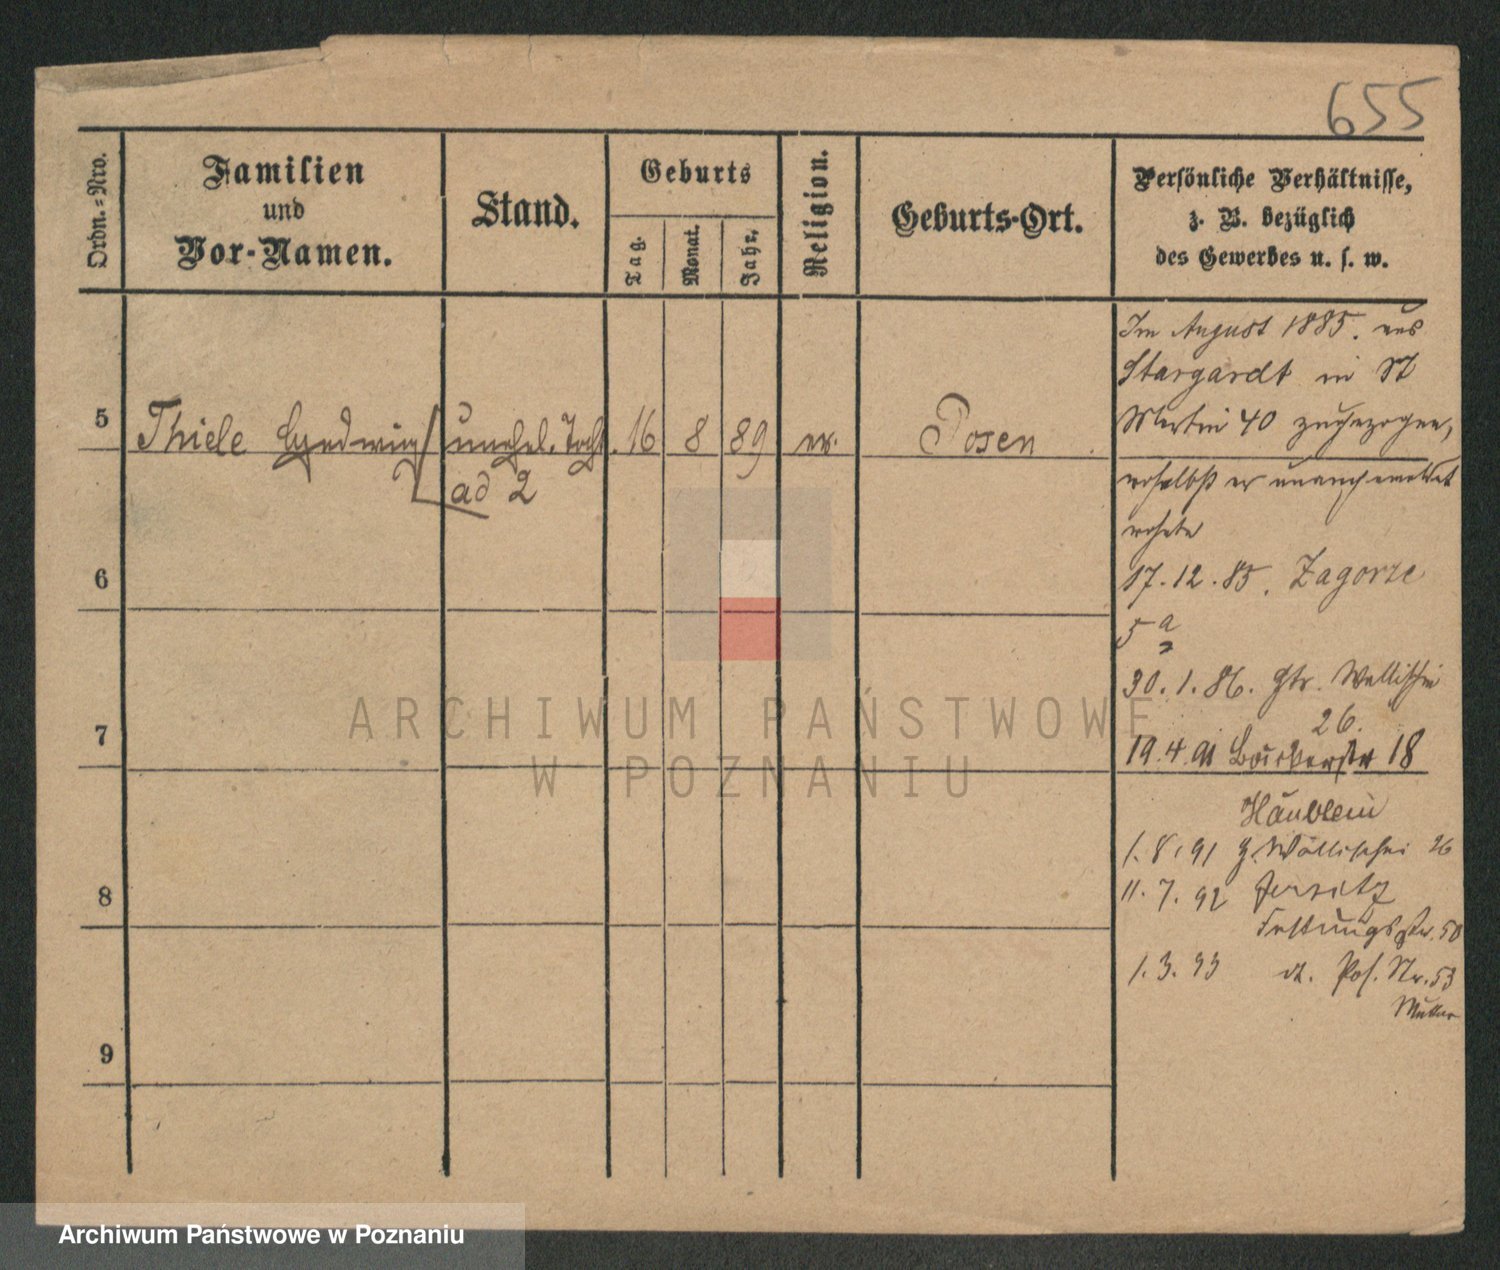 655
Ordn.-Nro.
Familien
und
Vor-Namen.
Stand.
Geburts
Tag.
Monat.
Jahr.
Religion.
Geburts-Ort.
Persönliche Verhältnisse,
z. B. bezüglich
des Gewerbes u. s. w.
Im August 1885. aus
Stargardt in St
Martin 40 zugezogen,
5 Thiele Hedwig unehel. Tocht. 16 8 89 ev. Posen
ad 2
woselbst er unangemeldet
wohnte
6
17. 12. 85. Zagorze
5 a
30. 1. 86. Wallischei
26.
7
19. 4. 91 Bäckerstr 18
Häuslein
1. 8. 91 Wallischei 26
8
11. 7. 92 Jersitz
Festungsstr. 50
1. 3. 93 dt. Pos. Str. 53
Mutter
9
ARCHIWUM PAŃSTWOWE
W POZNANIU
Archiwum Państwowe w Poznaniu